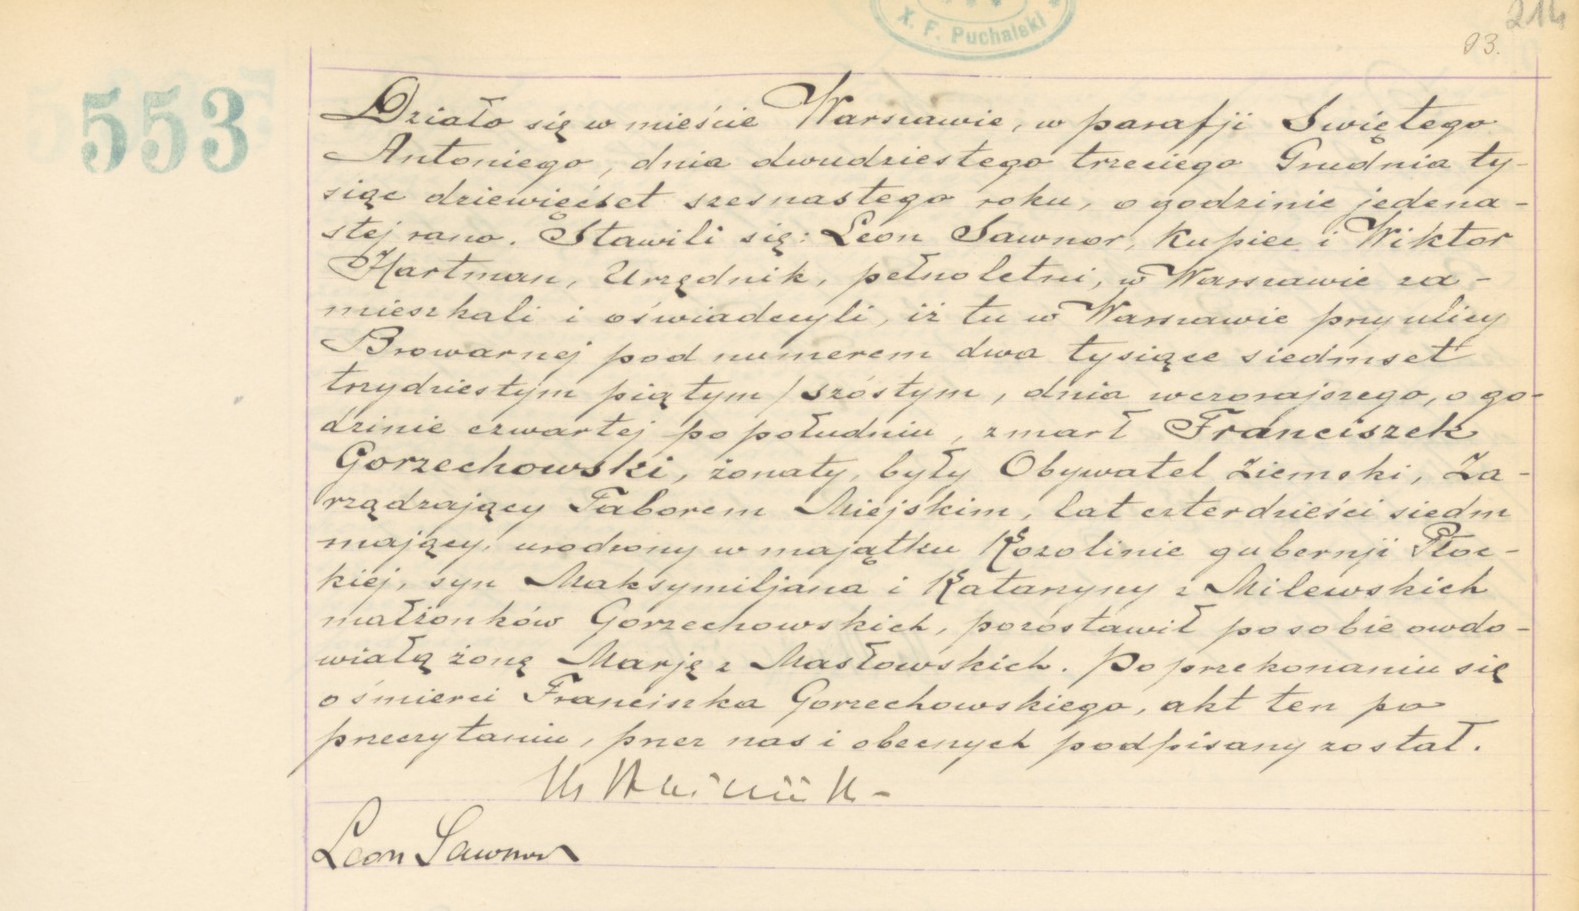 214
93.
X. F. Puchalski
553
Działo się w mieście Warszawie, w parafji Świętego
Antoniego, dnia dwudziestego trzeciego Grudnia ty-
siąc dziewięćset szesnastego roku, o godzinie jedena-
stej rano. Stawili się: Leon Sawnor, Kupiec i Wiktor
Hartman, Urzędnik, pełnoletni, w Warszawie za-
mieszkali i oświadczyli, iż tu w Warszawie przy ulicy
Browarnej pod numerem dwa tysiące siedmset
trzydziestym piątym / szóstym, dnia wczorajszego, o go-
dzinie czwartej po południu, zmarł Franciszek
Gorzechowski, żonaty, były Obywatel Ziemski, Za-
rządzający Taborem Miejskim, lat czterdzieści siedm
mający, urodzony w majątku Kozolinie gubernji Płoc-
kiej, syn Maksymiljana i Katarzyny z Milewskich
małżonków Gorzechowskich, pozostawił po sobie owdo-
wiałą żonę Marję z Masłowskich. Po przekonaniu się
o śmierci Franciszka Gorzechowskiego, akt ten po
przeczytaniu, przez nas i obecnych podpisany został.
Leon Sawnor